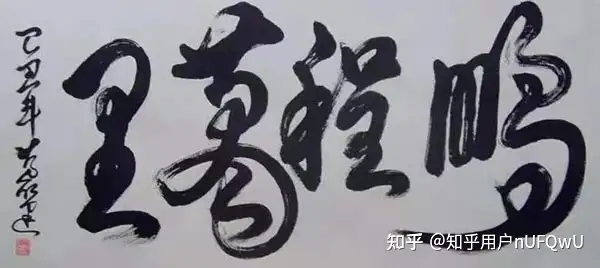 鵬程萬里
己丑年
知乎 @知乎用户nUFQwU